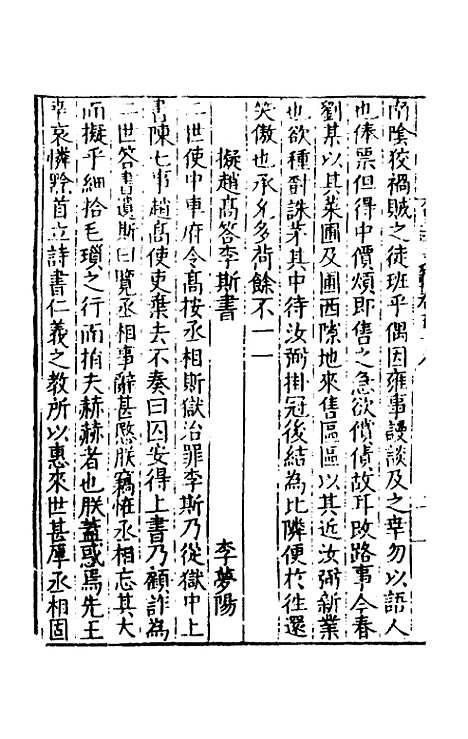 南陰狡禍賊之徒班乎偶因雍事謾談及之幸勿以語人
也俸票但得中價煩即售之急欲償債故耳改路事今春
劉某以其菜圃及圃西隙地來售區區以其近汝弼新業
也欲種樹誅茅其中待汝弼掛冠後結為比隣便於往還
笑傲也承兄多荷餘不一一
擬趙高答李斯書 李夢陽
二世使中車府令高按丞相斯獄治罪李斯乃從獄中上
書陳七事趙高使吏棄去不奏曰囚安得上書乃顧詐為
二世答書遺斯曰覽丞相事辭甚愍朕竊恠丞相忘其大
而擬乎細拾毛瑣之行而捐夫赫赫者也朕蓋惑焉先王
哀憐黔首立詩書仁義之教所以惠來世甚厚丞相固